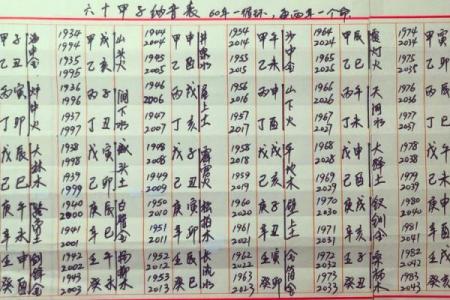 六十甲子纳音表 60年一循环,每两年一个命.
甲子 海中金 1934 甲戌 山头火 1944 甲申 井泉水 1954 甲午 沙中金 1964 甲辰 覆灯火 1974 甲寅
1994 2004 2014 2024 2034
乙丑 1935 乙亥 1945 乙酉 1955 乙未 1965 乙巳 1975 乙卯
1995 2005 2015 2025 2035
丙寅 炉中火 1936 丙子 涧下水 1946 丙戌 屋上土 1956 丙申 山下火 1966 丙午 天河水 1976 丙辰
1996 2006 2016 2026 2036
丁卯 1937 丁丑 1947 丁亥 1957 丁酉 1967 丁未 1977 丁巳
1997 2007 2017 2027 2037
戊辰 大林木 1938 戊寅 城头土 1948 戊子 霹雳火 1958 戊戌 平地木 1968 戊申 大驿土 1978 戊午
1998 2008 2018 2028 2038
己巳 1939 己卯 1949 己丑 1959 己亥 1969 己酉 1979 己未
1999 2009 2019 2029 2039
庚午 路旁土 1940 庚辰 白腊金 1950 庚寅 松柏木 1960 庚子 壁上土 1970 庚戌 钗钏金 1980 庚申
2000 2010 2020 2030 2040
辛未 1941 辛巳 1951 辛卯 1961 辛丑 1971 辛亥 1981 辛酉
2001 2011 2021 2031 2041
壬申 剑锋金 1942 壬午 杨柳木 1952 壬辰 长流水 1962 壬寅 金箔金 1972 壬子 桑柘木 1982 壬戌
2002 2012 2022 2032 2042
癸酉 1943 癸未 1953 癸巳 1963 癸卯 1973 癸丑 1983 癸亥
2003 2013 2023 2033 2043